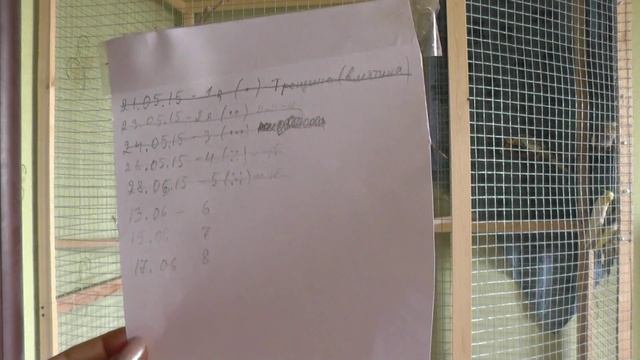 21.05.15 - 1я (•) Трещина (вмятина)
23.05.15 - 2я (••)
24.05.15 - 3 (•••)
26.05.15 - 4 (::)
28.05.15 - 5 (:•:)
13.06 - 6
15.06 7
17.06 8